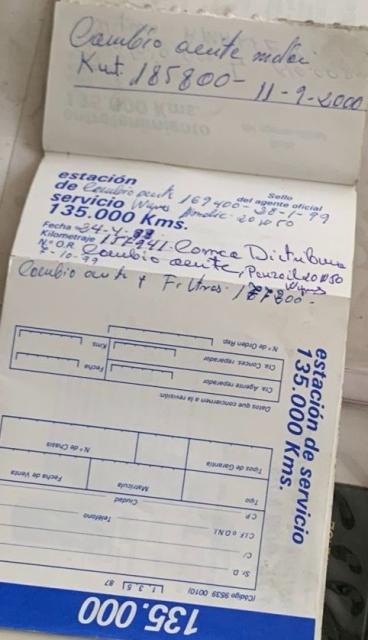 Cambio aceite motor
Kmt. 185800 - 11-9-2000
estación
de Cambio aceite 169400 - 28-1-99
Sello
del agente oficial
servicio Wynns 20W50
135.000 Kms.
Fecha 24-4-99
Kilometraje 177241. Correa Distribucion
N.º O.R. Cambio aceite, Penzoil 20W50
7-10-99 Wynns
Cambio aceite y Filtros. 177800 -
estación de servicio
135.000 Kms.
N.º de Orden Rep.
Cta. Conces. reparador
Kms
Cta. Agente reparador
Fecha
Datos que conciernen a la revisión:
Tipos de Garantía
N.º de Chasis
Tipo
Matrícula
Fecha de Venta
C.P.
Ciudad
C.I.F. o D.N.I.
Teléfono
C/
Sr. D.
(Código 9539 0010)
1 3 5 87
135.000